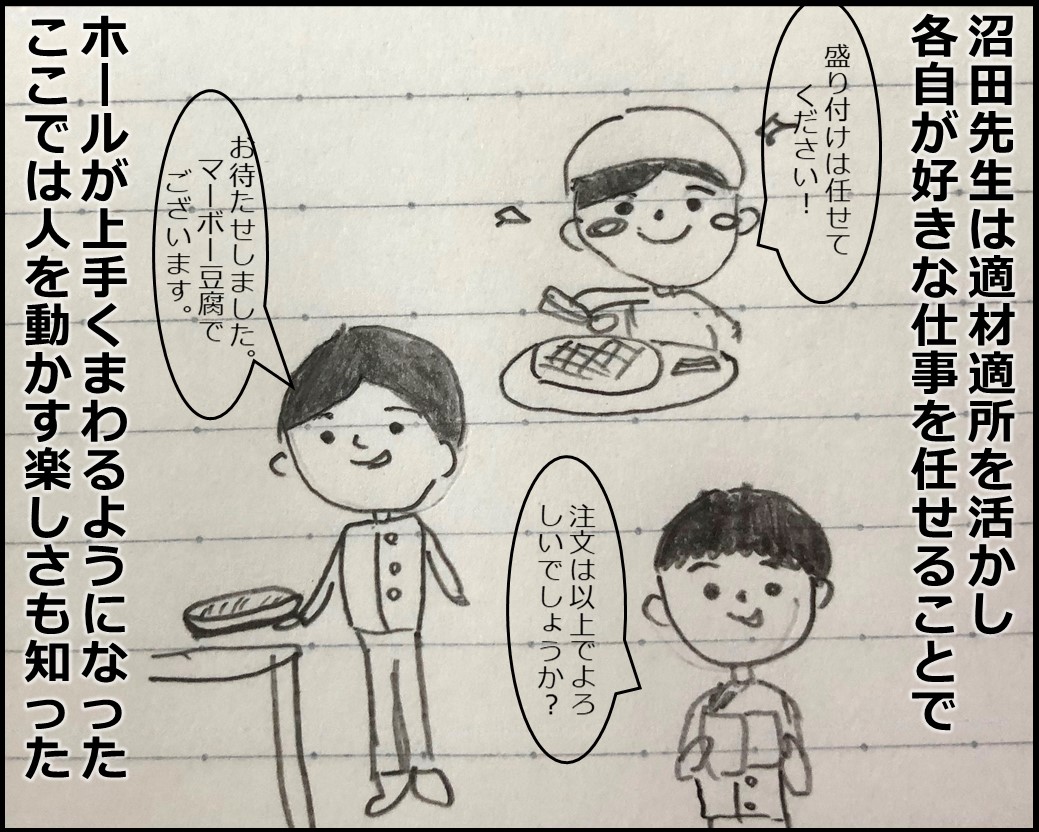 沼田先生は適材適所を活かし
各自が好きな仕事を任せることで
盛り付けは任せて
ください！
お待たせしました。
マーボー豆腐で
ございます。
注文は以上でよろ
しいでしょうか？
ホールが上手くまわるようになった
ここでは人を動かす楽しさも知った